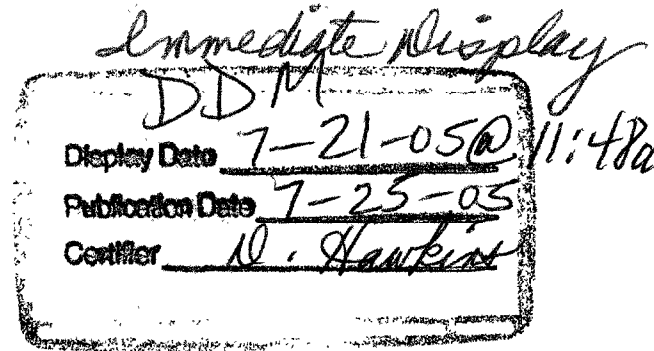 Immediate Display
DDM
Display Date 7-21-05@ 11:48a
Publication Date 7-25-05
Certifier D. Hawkins